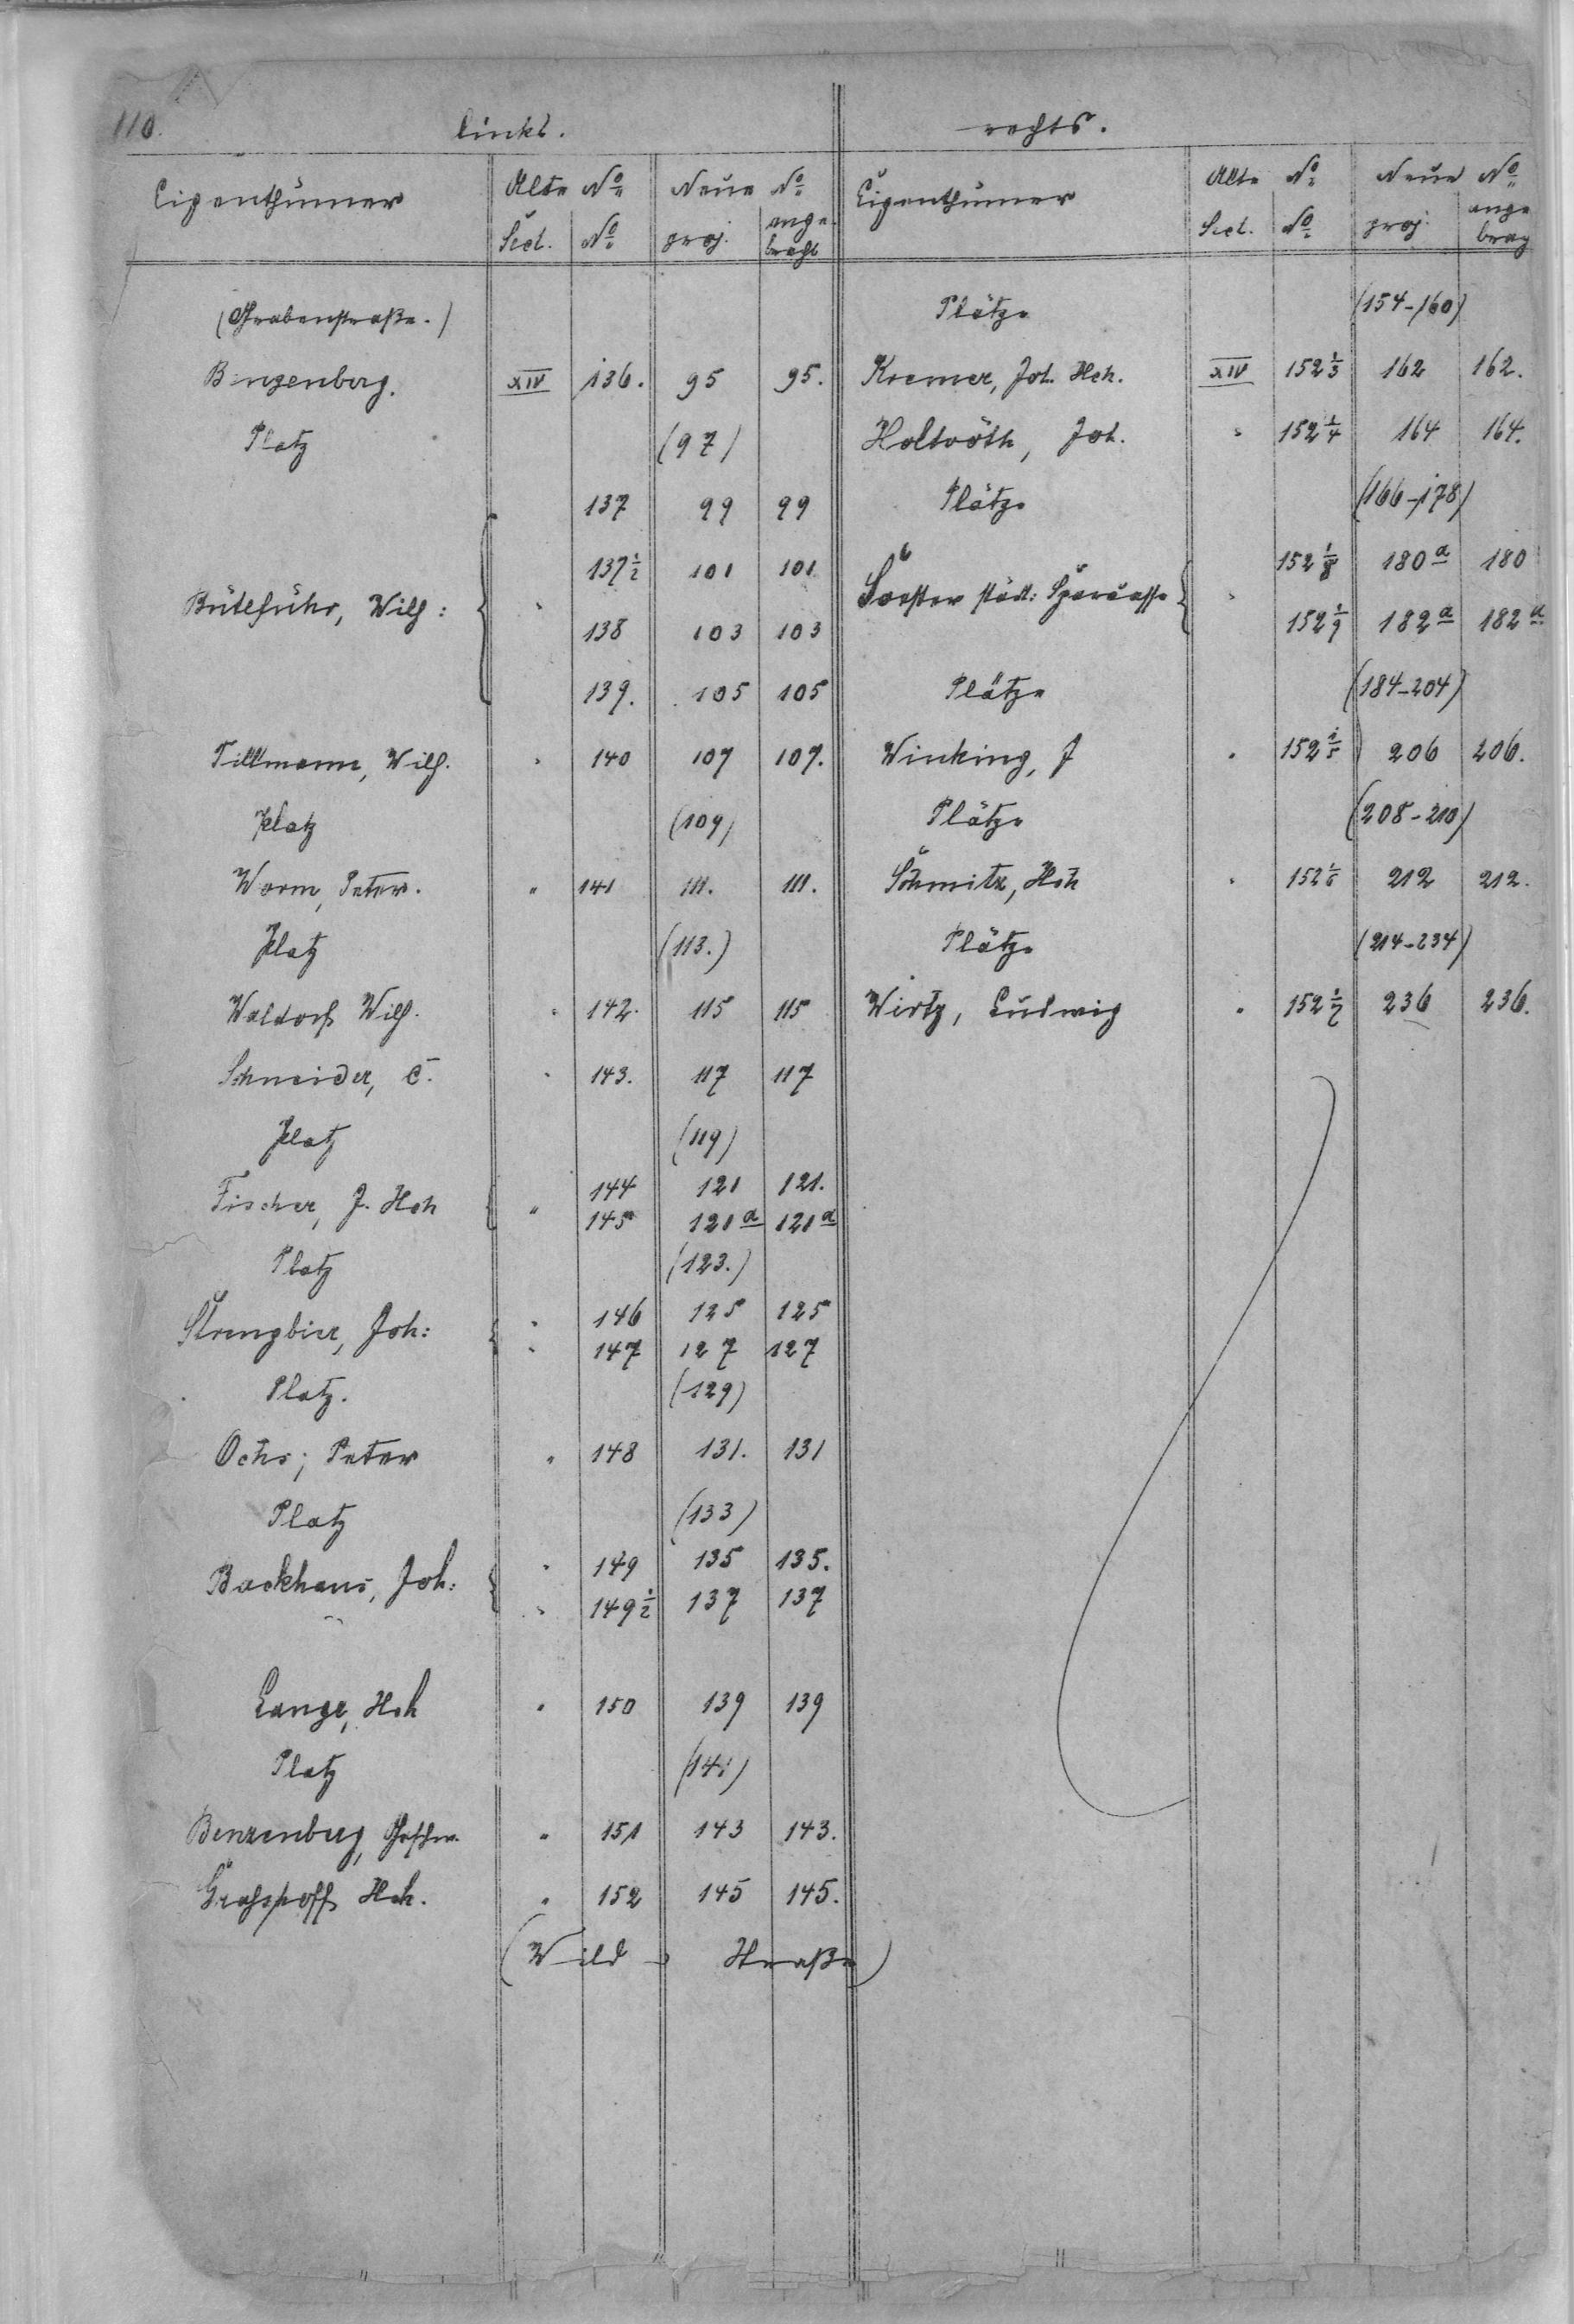 110.
links.
Eigenthümer | Alte No | Neue No
Sect. | No | proj. | angebracht
(Grabenstraße.)
Benzenberg. | XIV | 136. | 95 | 95.
Platz | (97)
137 | 99 | 99
137 1/2 | 101 | 101
Bütefuhr, Wilh: | "
138 | 103 | 103
139. | 105 | 105
Tillmann, Wilh. | " | 140 | 107 | 107.
Platz | (109)
Worm, Peter. | " | 141 | 111. | 111.
Platz | (113.)
Waldorf Wilh. | " | 142. | 115 | 115
Schneider, C. | " | 143. | 117 | 117
Platz | (119)
Fischer, J. Hch | " | 144 | 121 | 121.
145 | 121a | 121a
Platz | (123.)
Strengbier, Joh: | " | 146 | 125 | 125
" | 147 | 127 | 127
Platz. | (129)
Ochs, Peter | " | 148 | 131. | 131
Platz | (133)
Backhaus, Joh: | " | 149 | 135 | 135.
" | 149 1/2 | 137 | 137
Lange, Hch | " | 150 | 139 | 139
Platz | (141)
Benzenberg, Geschw. | " | 151 | 143 | 143.
Hch. | " | 152 | 145 | 145.
(Wild - Straße)
rechts.
Eigenthümer | Alte No | Neue No
Sect. | No | proj. | angebrag
Plätze | (154-160)
Kremer, Joh. Hch. | XIV | 152 1/3 | 162 | 162.
Holtvöth, Joh. | " | 152 1/4 | 164 | 164.
Plätze | (166-178)
152 1/8 | 180a | 180
Soester städt: Sparcasse | "
152 1/9 | 182a | 182a
Plätze | (184-204)
Winking, J | " | 152 1/5 | 206 | 206.
Plätze | (208-210)
Schmitz, Hch | " | 152 1/6 | 212 | 212.
Plätze | (214-234)
Wirtz, Ludwig | " | 152 1/7 | 236 | 236.